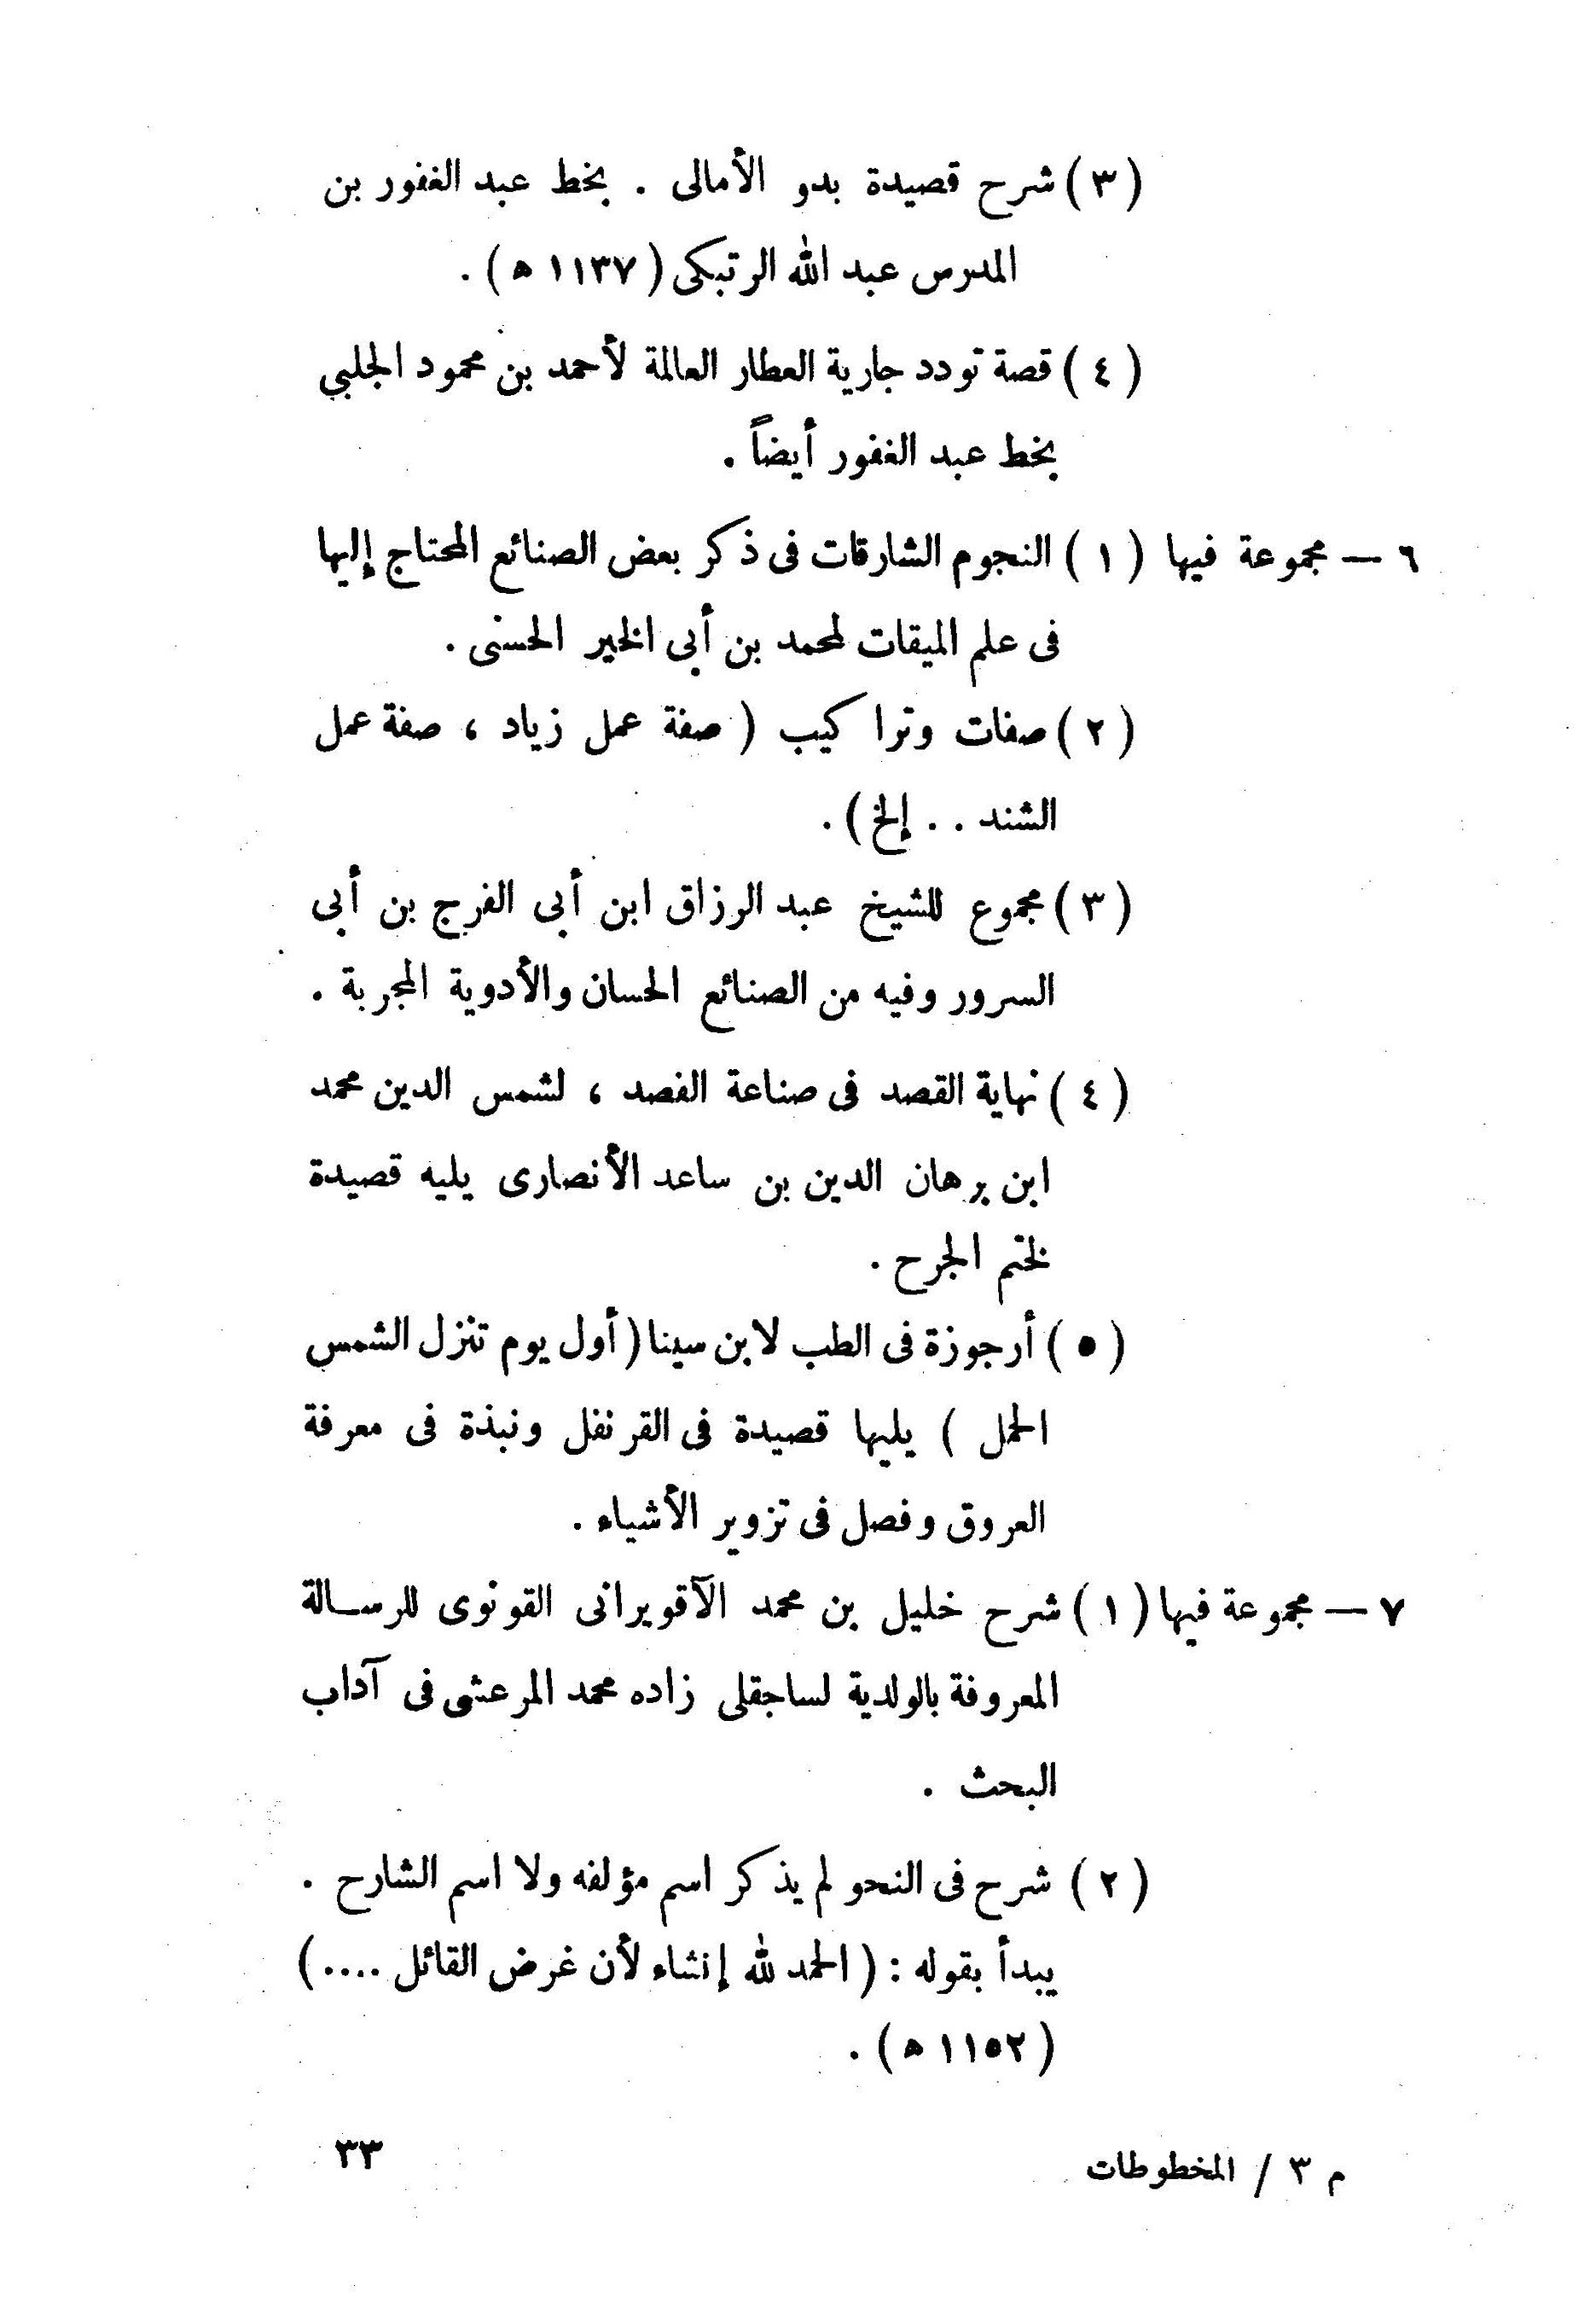 ( ٣ ) شرح قصيدة بدو الأمالى . بخط عبد الغفور بن
المدرس عبد الله الرتبكى ( ١١٣٧ ه ) .
( ٤ ) قصة تودد جارية العطار العالمة لأحمد بن محمود الجلبي
بخط عبد الغفور أيضاً .
٦ — مجموعة فيها ( ١ ) النجوم الشارقات فى ذكر بعض الصنائع المحتاج إليها
فى علم الميقات لمحمد بن أبى الخير الحسنى .
( ٢ ) صفات وتراكيب ( صفة عمل زياد ، صفة عمل
الشند . . إلخ ) .
( ٣ ) مجموع للشيخ عبد الرزاق ابن أبى الفرج بن أبى
السرور وفيه من الصنائع الحسان والأدوية المجربة .
( ٤ ) نهاية القصد فى صناعة الفصد ، لشمس الدين محمد
ابن برهان الدين بن ساعد الأنصارى يليه قصيدة
لختم الجرح .
( ٥ ) أرجوزة فى الطب لابن سينا ( أول يوم تنزل الشمس
الحمل ) يليها قصيدة فى القرنفل ونبذة فى معرفة
العروق وفصل فى تزوير الأشياء .
٧ — مجموعة فيها ( ١ ) شرح خليل بن محمد الآقويرانى القونوى للرسالة
المعروفة بالولدية لساجقلى زاده محمد المرعشى فى آداب
البحث .
( ٢ ) شرح فى النحو لم يذكر اسم مؤلفه ولا اسم الشارح .
يبدأ بقوله : ( الحمد لله إنشاء لأن غرض القائل .... )
( ١١٥٢ ه ) .
م ٣ / المخطوطات ٣٣